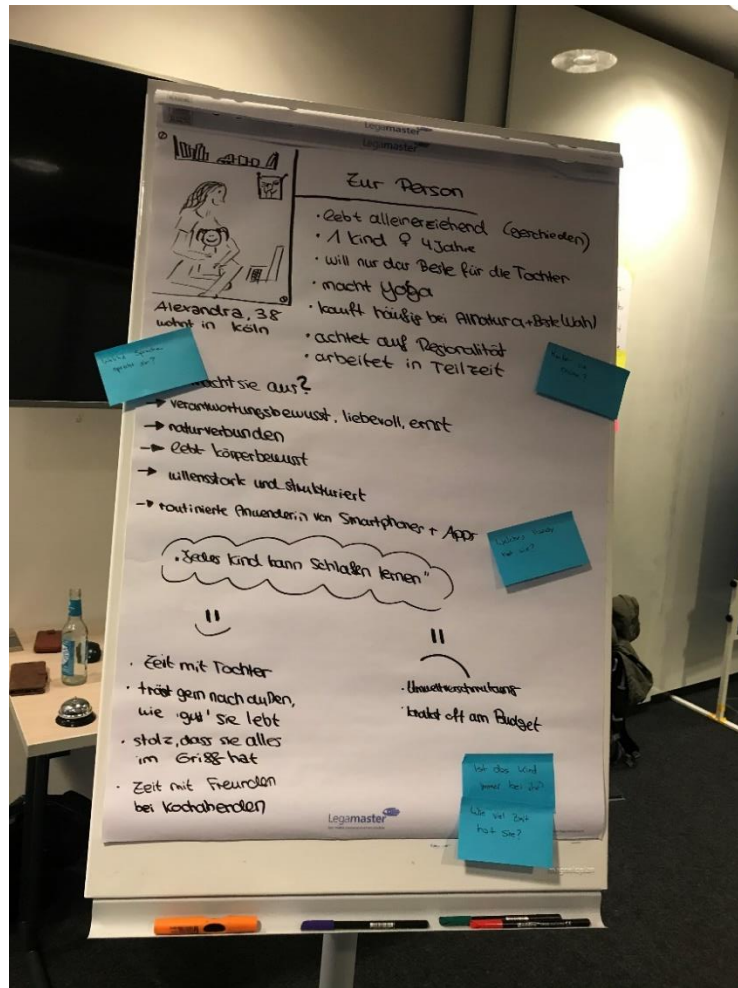 Legamaster
Legamaster
Zur Person
• lebt alleinerziehend (geschieden)
• 1 Kind ♀ 4 Jahre
• will nur das Beste für die Tochter
• macht Yoga
• kauft häufig bei Alnatura + Beste Wahl
• achtet auf Regionalität
• arbeitet in Teilzeit
Alexandra, 38
wohnt in Köln
sie?
macht sie aus?
→ verantwortungsbewusst, liebevoll, ernst
→ naturverbunden
→ lebt körperbewusst
→ willensstark und strukturiert
→ routinierte Anwenderin von Smartphones + Apps
hat sie?
"Jedes Kind kann Schlafen lernen"
• Zeit mit Tochter
• trägt gern nach außen,
wie 'gut' sie lebt
• stolz, dass sie alles
im Griff hat
• Zeit mit Freunden
bei Kochabenden
• Umweltverschmutzung
• kratzt oft am Budget
Ist das Kind
immer bei ihr?
Wie viel Zeit
hat sie?
Legamaster